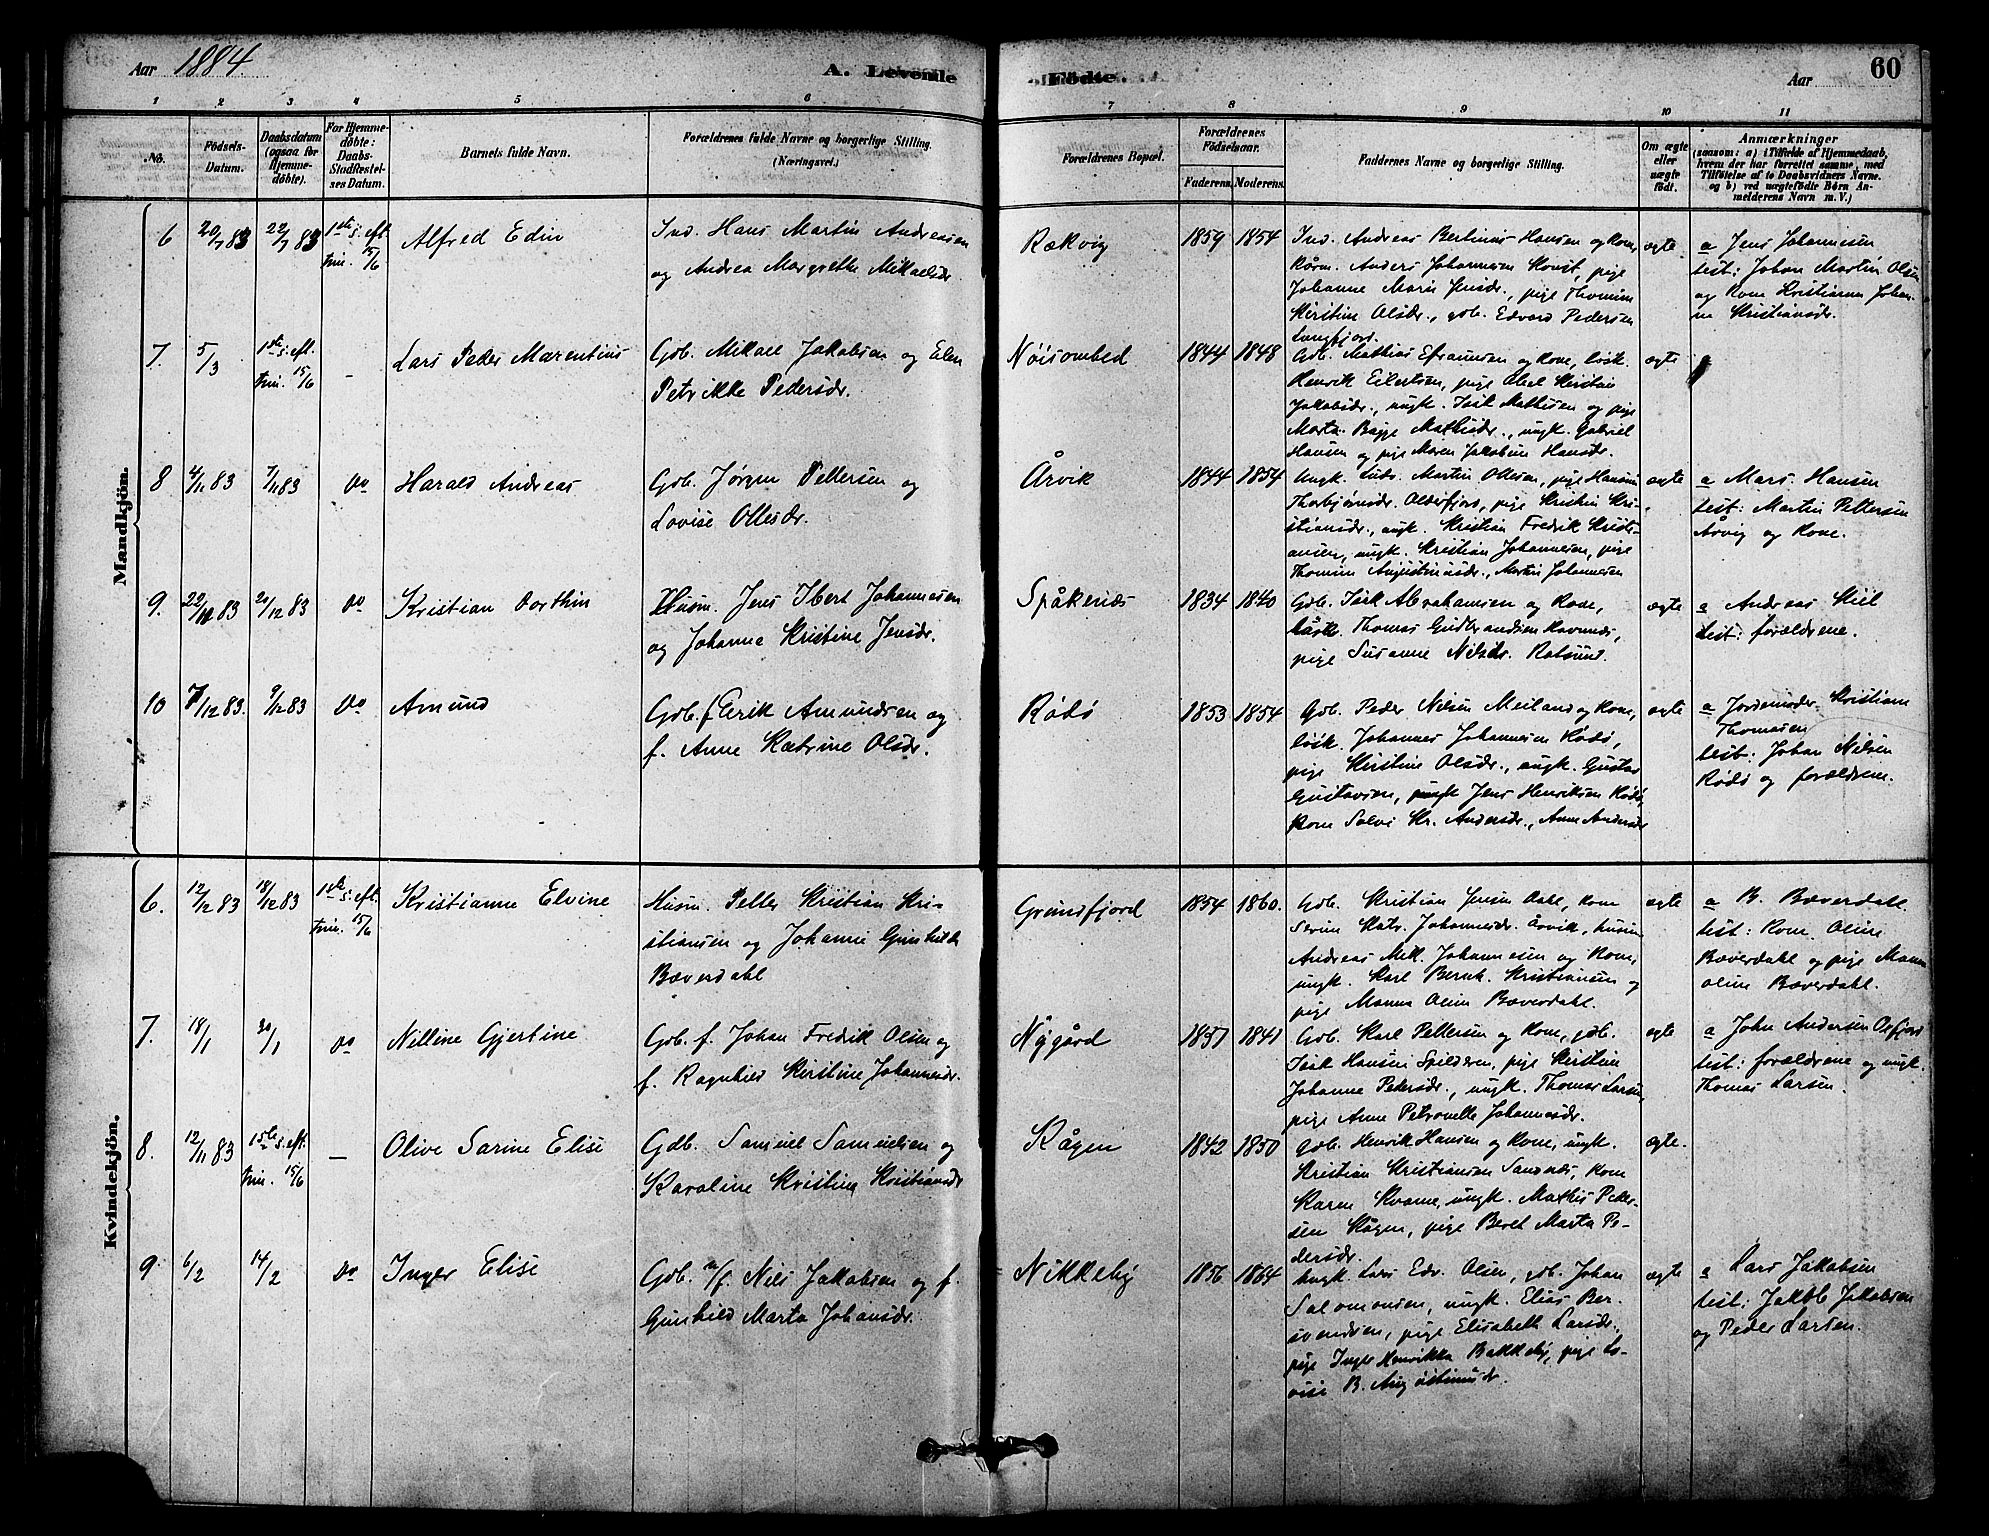 Aar 1884
A. Levende
Födte.
Aar
60
1 2 3 4 5 6 7 8 9 10 11
No.
Födsels-Datum.
Daabsdatum (ogsaa for Hjemme-döbte).
For Hjemme-döbte: Daabs-Stadfæstel-ses Datum.
Barnets fulde Navn.
Forældrenes fulde Navne og borgerlige Stilling.
(Næringsvei.)
Forældrenes Bopæl.
Forældrenes Födselsaar.
Faderens. Moderens.
Faddernes Navne og borgerlige Stilling.
Om ægte eller uægte födt.
Anmærkninger
(saasom: a) i Tilfælde af Hjemmedaab,
hvem der har forrettet samme, med
Tilföielse af to Daabsvidners Navne.
og b) ved uægtefödte Börn An-
melderens Navn m. V.)
Mandkjön.
6 20/7 83 22/7 83 1ste s. eft. trin. 15/6
Alfred Edin
Ind. Hans Martin Andreasen
og Andrea Margrethe Mikaelsdr.
Rækvig
1859 1854
Ind. Andreas Bertinus Hansen og Kone,
Anders Johannesen
Johanne Marie Jensdr., pige
Kirstine Olsdr., gdb. Edvard Pedersen
Langfjord.
ægte
a Jens Johannesen
test: Johan Martin Olsen
og Kone Kristianna Johan-
ne Kristiansdr.
7. 5/3 1ste s. eft. trin. 15/6 -
Lars Peder Marentius
Gdb. Mikael Jakobsen og Elen
Petrikke Pedersdr.
Nöisombed
1844 1848
Gdb. Mathias Efraimsen og Kone, løsk.
Henrik Eilertsen, pige OleL Kristine
Jakobsdr., ungk. Isak Mathisen og pige
Marta Bagge Mathisdr., ungk. Gabriel
Hansen og pige Maren Jakobine Hansdr.
ægte
8 4/11 83 7/11 83 Do
Harald Andreas
Gdb. Jørgen Pettersen og
Lovise Ollesdr.
Årvik
1844 1854
Ungk. Martin Ollesen, pige Hansine
Thorbjørnsdr. Olderfjord, pige Kristine Kri-
stiansdr., ungk. Kristian Fredrik Kristi-
ansen, ungk. Kristian Johannesen, pige
Thomine Augustinusdr., Martin Johannesen
ægte
a Mars Hansen
test: Martin Pettersen
Årvig og Kone.
9. 22/11 83 20/12 83 Do
Kristian Dorthin
Husm. Jens Ibert Johannesen
og Johanna Kristine Jensdr.
Spåkenæs
1834 1840
Gdb. Isak Abrahamsen og Kone,
Thomas Gudbrandsen Ravnnæs,
pige Susanne Nilsdr. Rotsund.
ægte
a Andreas Kiil
test: forældrene.
10 7/12 83. 9/12 83 Do
Amund
Gdb. f. Erik Amundsen og
f. Anne Katrine Olsdr.
Rödö
1853 1854
Gdb. Peder Nilsen Meiland og Kone,
løsk. Johannes Johannesen Rödö,
pige Kirstine Olsdr., ungk. Gustav
Gustavsen, ungk Jens Henriksen Rödö,
Kone Solvi Kr. Andersdr., Anne Andersdr
ægte
a Jordemoder Kristiane
Thomasen
test: Johan Nilsen
Rödö og forældrene.
Kvindekjön.
6. 12/12 83 18/12 83 1ste s. eft. trin. 15/6
Kristianne Elvine
Husm. Petter Kristian Kri-
stiansen og Johanne Gunhilde
Bæverdahl
Grundfjord
1854 1860.
Gdb. Kristian Jensen Dahl, Kone
Serine Katr. Johannesdr. Årvik, husm
Andreas Mik. Johannesen og Kone,
ungk. Karl Bernh. Kristiansen og
pige Manna Oline Bæverdahl.
ægte
a B. Bæverdahl.
test: Kone Oline
Bæverdahl og pige Manna
Oline Bæverdahl.
7. 18/1 20/1 Do
Nilline Gjertine
Gdb. f. Johan Fredrik Olsen og
f. Ragnhild Kirstine Johannesdr.
Nygård
1837 1841
Gdb. Karl Pettersen og Kone, gdb.
Isak Hansen Spilderen, pige Kirstine
Johanne Pedersdr., ungk. Thomas Larsen,
pige Anne Petronelle Johannesdr.
ægte
a John Andersen Oxfjord
test: forældrene og ungk.
Thomas Larsen.
8. 12/11 83 1ste s. eft. trin. 15/6 -
Olive Sarine Elise
Gdb. Samuel Samuelsen og
Karoline Kristine Kristiansdr
Kågen
1842 1850
Gdb. Henrik Hansen og Kone, ungk.
Kristian Kristiansen Sandnæs, Kone
Karen Kvæne, ungk. Mathis Peder-
sen Kågen, pige Beret Marta Pe-
dersdr.
ægte.
9 6/2 14/2 Do
Inger Elise
Gdb. n/f. Nils Jakobsen og f.
Gunhild Marta Johansdr.
Nikkeby
1856 1864
Ungk. Lars Edv. Olsen, gdb. Johan
Salomonsen, ungk. Elias Ber-
svendsen, pige Elisabeth Larsdr.,
pige Inger Henrikka Bakkeby, pige Lo-
vise B. Augustinusdr.
ægte
a Lars Jakobsen
test: Jakob Jakobsen
og Peder Larsen.